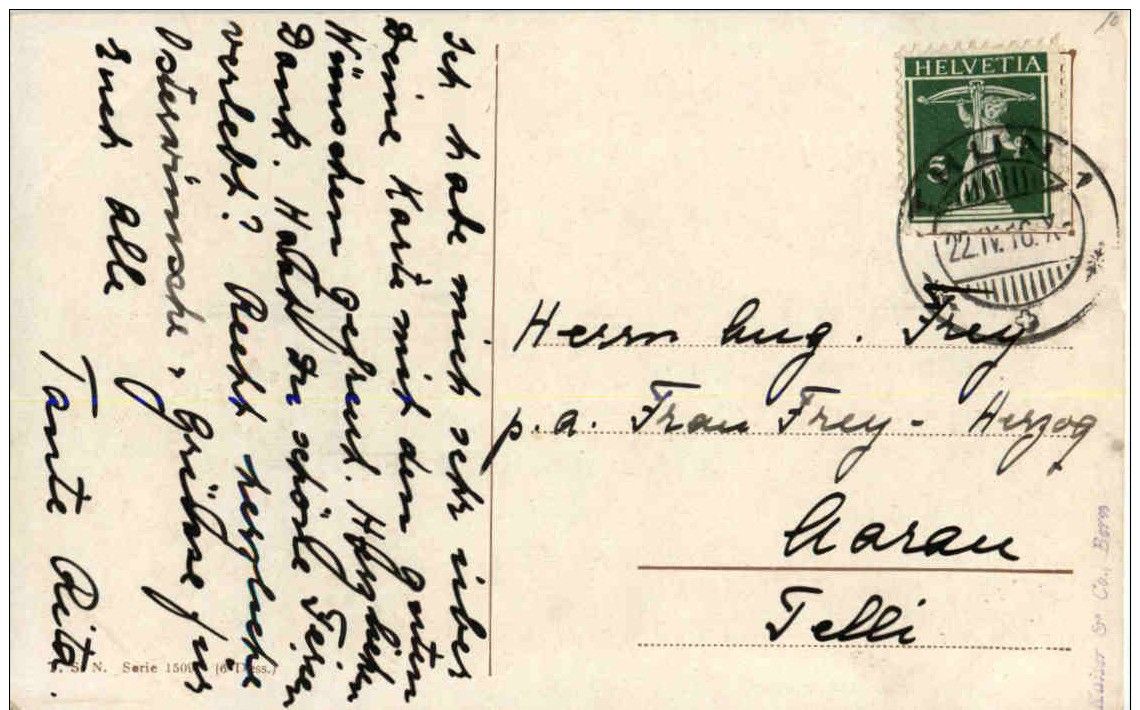 Ich habe mich sehr über
Deine Karte mit den guten
Wünschen gefreut. Herzlichen
Dank. Hast Du schöne Ferien
verlebt? Recht herzliche
Osterwünsche & Grüsse für
Euch alle
Tante Rita.
T. S. N. Serie 150 (6 Dess.)
10
HELVETIA
5
22.IV.16.X-
Herrn Aug. Frey
p. a. Frau Frey - Herzog
Aarau
Telli
Kaiser & Co., Bern